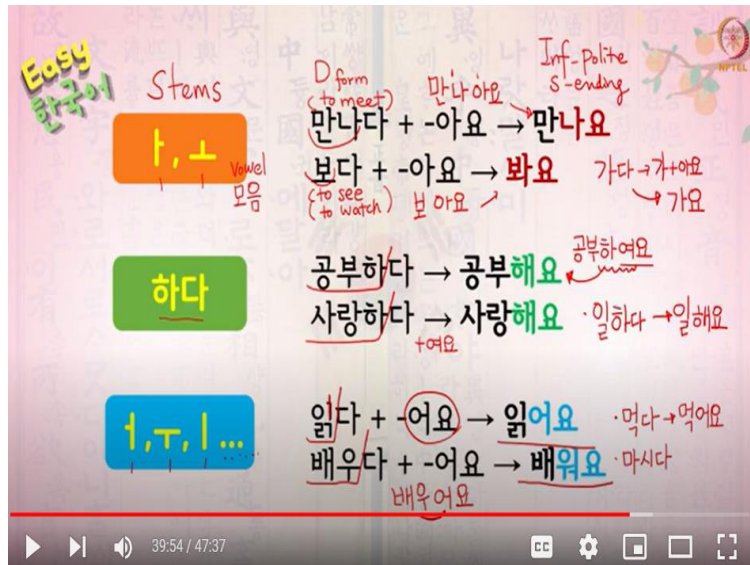 Easy
한국어
NPTEL
Stems
D form
(to meet)
만나아요
Inf-polite
s-ending
ㅏ, ㅗ
vowel
모음
만나다 + -아요 → 만나요
보다 + -아요 → 봐요
(to see
(to watch)
보아요
가다 → 가+아요
→ 가요
하다
공부하다 → 공부해요
공부하여요
사랑하다 → 사랑해요
+여요
·일하다 → 일해요
ㅓ, ㅜ, ㅣ...
읽다 + -어요 → 읽어요
·먹다 → 먹어요
배우다 + -어요 → 배워요
·마시다
배우어요
39:54 / 47:37
CC